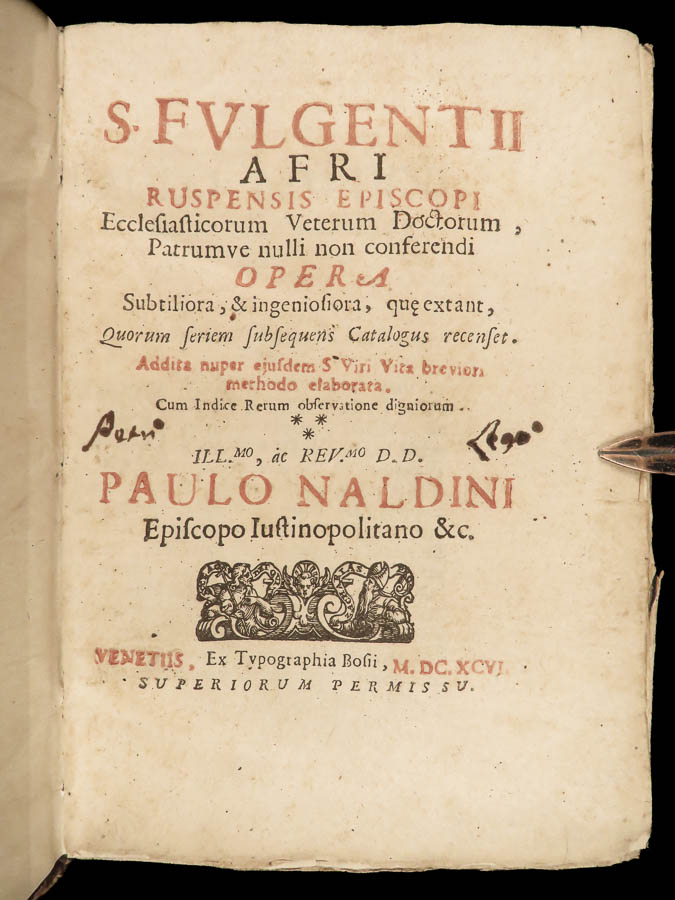 S. FVLGENTII
AFRI
RUSPENSIS EPISCOPI
Eccleſiaſticorum Veterum Doctorum,
Patrumve nulli non conferendi
OPERA
Subtiliora, & ingenioſiora, quę extant,
Quorum ſeriem ſubſequens Catalogus recenſet.
Addita nuper ejuſdem S. Viri Vita breviori
methodo elaborata.
Cum Indice Rerum obſervatione digniorum.
* *
*
Petri
ILL.MO, ac REV.MO D. D.
PAULO NALDINI
Epiſcopo Iuſtinopolitano &c.
VENETIIS, Ex Typographia Boſii, M. DC. XCVI.
SUPERIORUM PERMISSU.